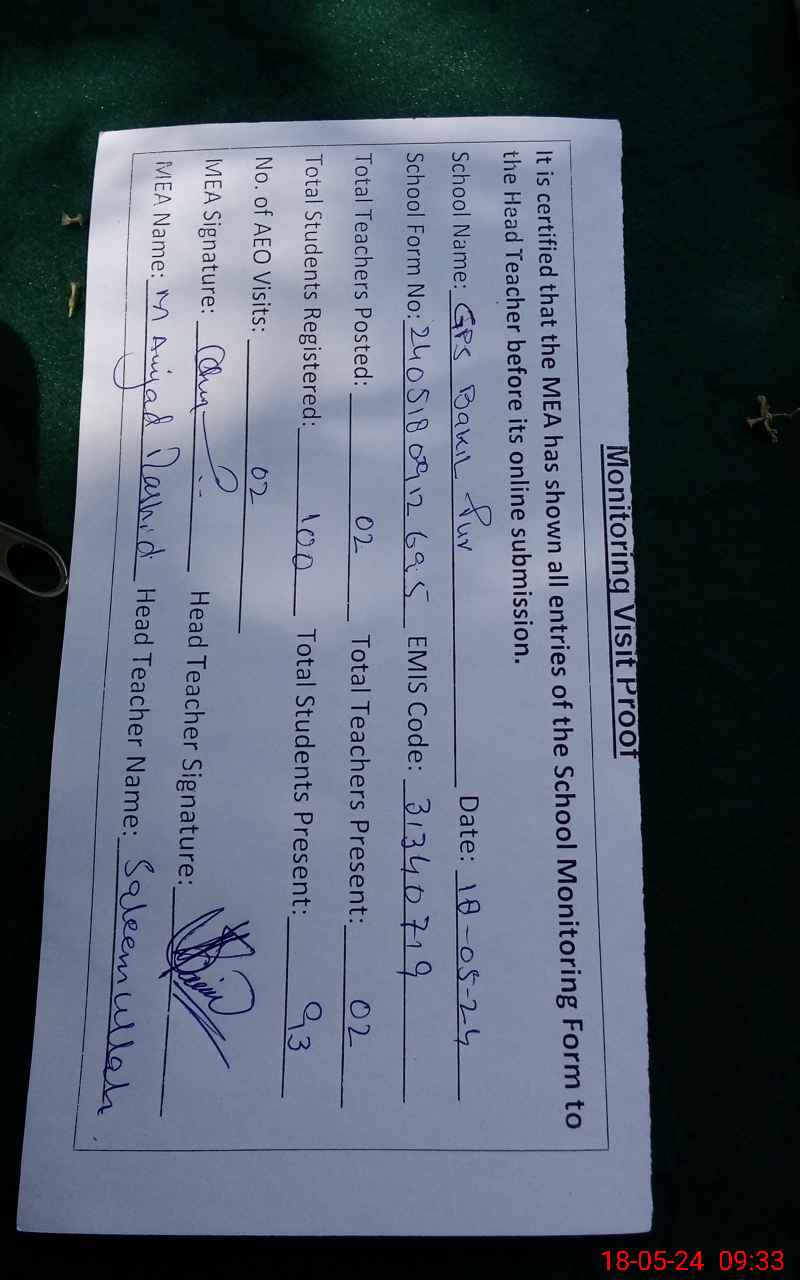 Monitoring Visit Proof
It is certified that the MEA has shown all entries of the School Monitoring Form to
the Head Teacher before its online submission.
School Name: GPS Bakhh Pur Date: 18-05-24
School Form No: 240518 0912695 EMIS Code: 31340719
Total Teachers Posted: 02 Total Teachers Present: 02
Total Students Registered: 100 Total Students Present: 93
No. of AEO Visits: 02
MEA Signature: Head Teacher Signature:
MEA Name: M Amjad Rashid Head Teacher Name: Saleem ullah
18-05-24 09:33